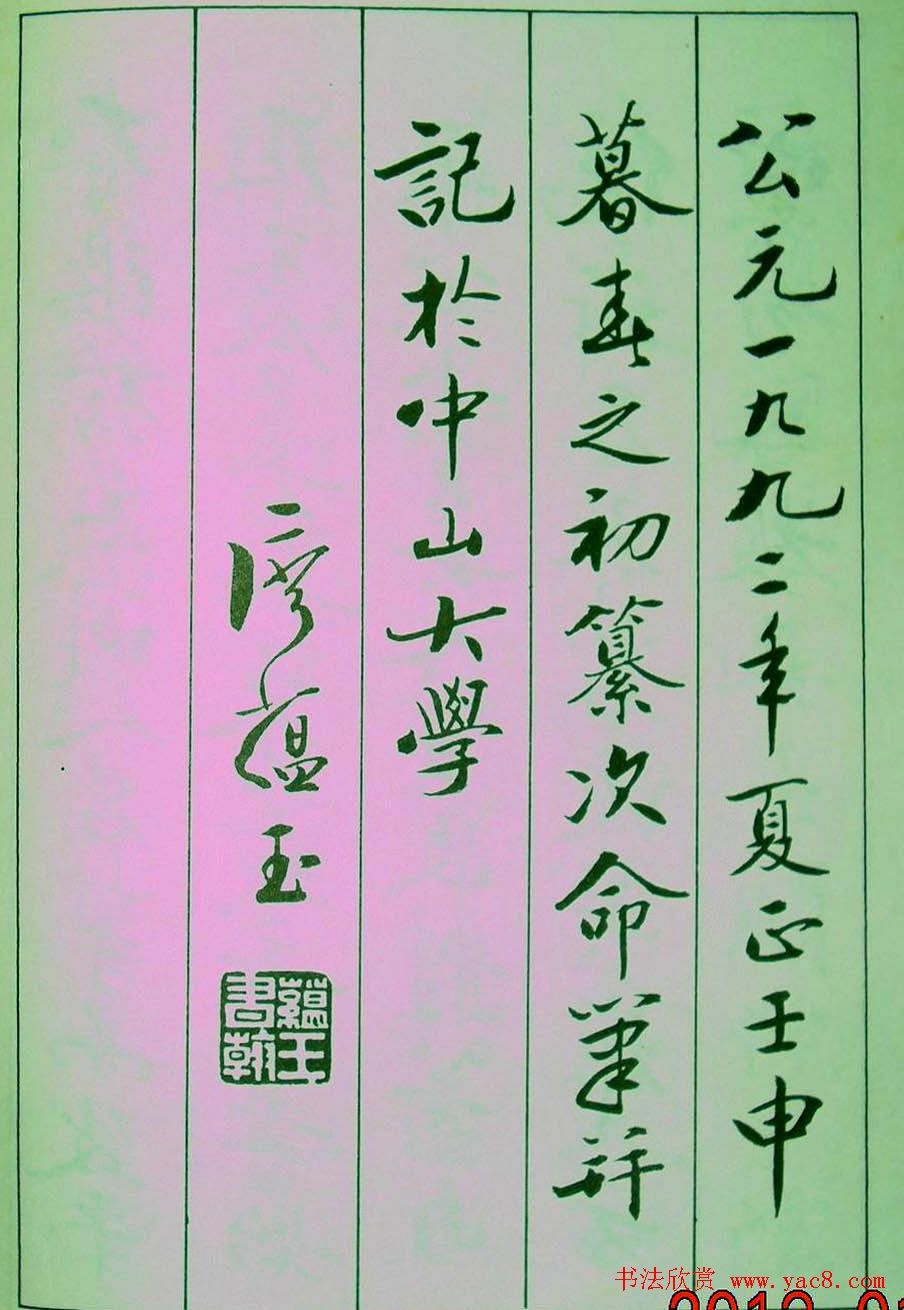 公元一九九二年夏正壬申
暮春之初纂次命筆并
記於中山大學
廖蘊玉
蘊玉
書翰
书法欣赏 www.yac8.com